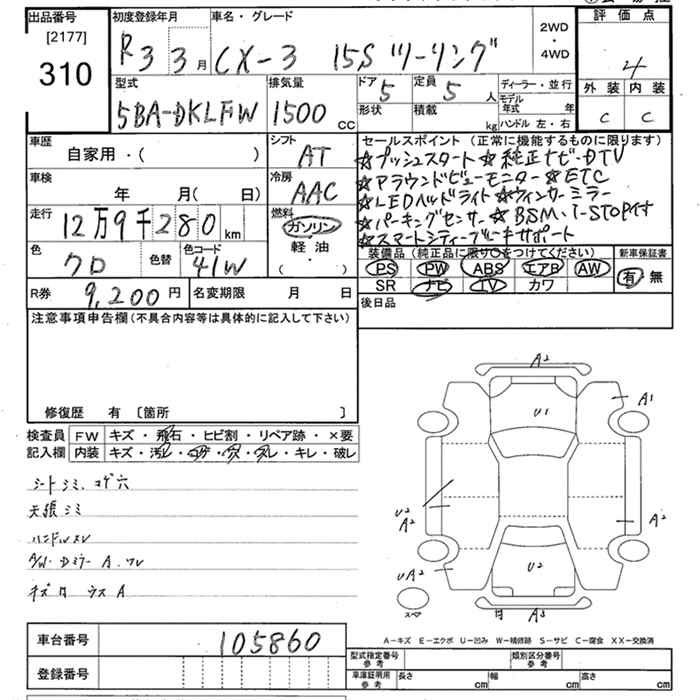 出品番号
[2177]
310
初度登録年月
R3 3月
車名・グレード
CX-3 15S ツーリング
2WD
・
4WD
評価点
4
外装 内装
C C
型式
5BA-DKLFW
排気量
1500 CC
ドア 5
定員 5 人
形状
積載 kg
ディーラー・並行
モデル年式 年
ハンドル 左・右
車歴
自家用・( )
シフト
AT
車検
年 月( 日)
冷房
AAC
走行
12万9千280 km
燃料
ガソリン
軽油
( ・ )
色
クロ
色替
色コード
41W
セールスポイント (正常に機能するものに限ります)
☆プッシュスタート☆純正ナビ・DTV
☆アラウンドビューモニター☆ETC
☆LEDヘッドライト☆ウィンカーミラー
☆パーキングセンサー☆BSM・i-STOP付
☆スマートシティーブレーキサポート
装備品 (純正品に限り○をつけてください)
PS PW ABS エアB AW
SR ナビ TV カワ
新車保証書
有 無
R券 9,200円
名変期限 月 日
後日品
注意事項申告欄(不具合内容等は具体的に記入して下さい)
修復歴 有 〔箇所 〕
検査員
記入欄
FW キズ・飛石・ヒビ割・リペア跡・×要
内装 キズ・汚レ・コゲ・穴・スレ・キレ・破レ
シートシミ、コゲ穴
天張シミ
ハンドルスレ
A/W・Dミラー A
A2
A1
U1
U2
A2
A2
UA2
U2
A3
スペア
A-キズ E-エクボ U-凹み W-補修跡 S-サビ C-腐食 XX-交換済
車台番号
105860
登録番号
型式指定番号
参考
類別区分番号
参考
車庫証明用
参考
長さ cm
幅 cm
高さ cm